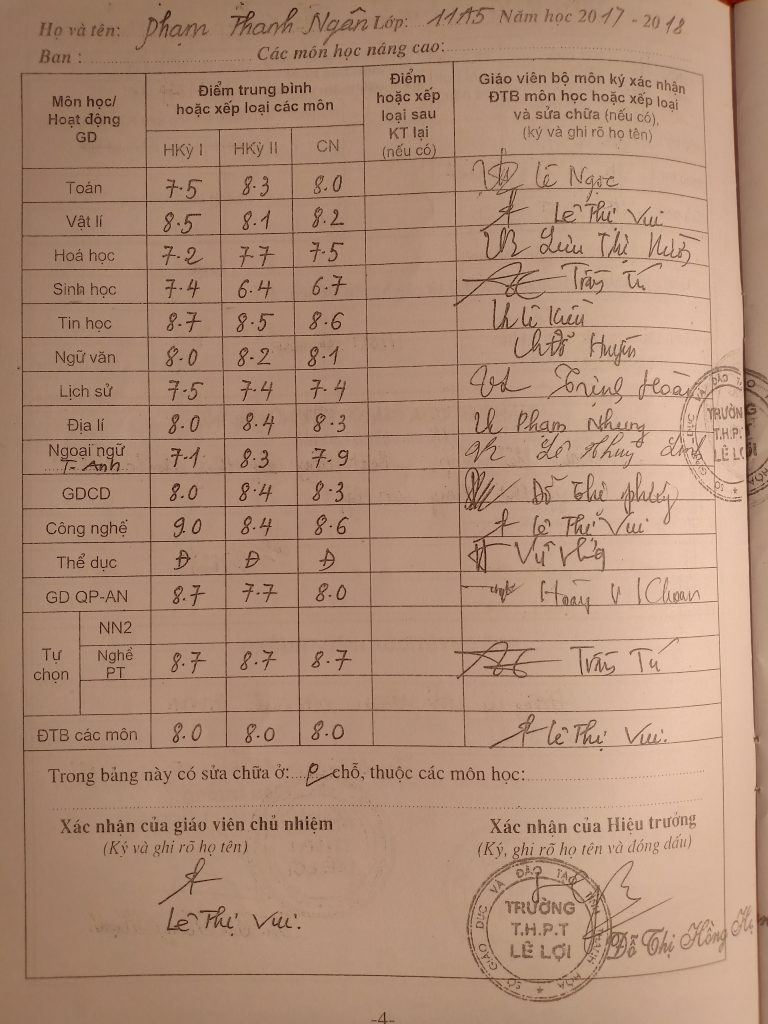 Họ và tên: Phạm Thanh Ngân Lớp: 11A5 Năm học 2017 - 2018
Ban : Các môn học nâng cao:
Môn học/ Hoạt động GD
Điểm trung bình hoặc xếp loại các môn
Điểm hoặc xếp loại sau KT lại (nếu có)
Giáo viên bộ môn ký xác nhận ĐTB môn học hoặc xếp loại và sửa chữa (nếu có), (ký và ghi rõ họ tên)
HKỳ I HKỳ II CN
Toán 7.5 8.3 8.0 Lê Ngọc
Vật lí 8.5 8.1 8.2 Lê Thị Vui
Hoá học 7.2 7.7 7.5 Thị
Sinh học 7.4 6.4 6.7 Trần Tú
Tin học 8.7 8.5 8.6 Lê Kiều
Ngữ văn 8.0 8.2 8.1 Đỗ Huyền
Lịch sử 7.5 7.4 7.4 Trịnh Hoàn
Địa lí 8.0 8.4 8.3 Phạm Nhung
Ngoại ngữ T. Anh 7.1 8.3 7.9 Lê Thuỳ Linh
GDCD 8.0 8.4 8.3 Đỗ Thị
Công nghệ 9.0 8.4 8.6 Lê Thị Vui
Thể dục Đ Đ Đ Vũ
GD QP-AN 8.7 7.7 8.0 Hoàng
Tự chọn
NN2
Nghề PT 8.7 8.7 8.7 Trần Tú
ĐTB các môn 8.0 8.0 8.0 Lê Thị Vui.
Trong bảng này có sửa chữa ở: chỗ, thuộc các môn học:
Xác nhận của giáo viên chủ nhiệm
(Ký và ghi rõ họ tên)
Lê Thị Vui.
Xác nhận của Hiệu trưởng
(Ký, ghi rõ họ tên và đóng dấu)
SỞ GIÁO DỤC VÀ ĐÀO TẠO THANH HÓA
TRƯỜNG
T.H.P.T
LÊ LỢI
Đỗ Thị Hồng
TRƯỜNG
T.H.P.T
LÊ LỢI
-4-